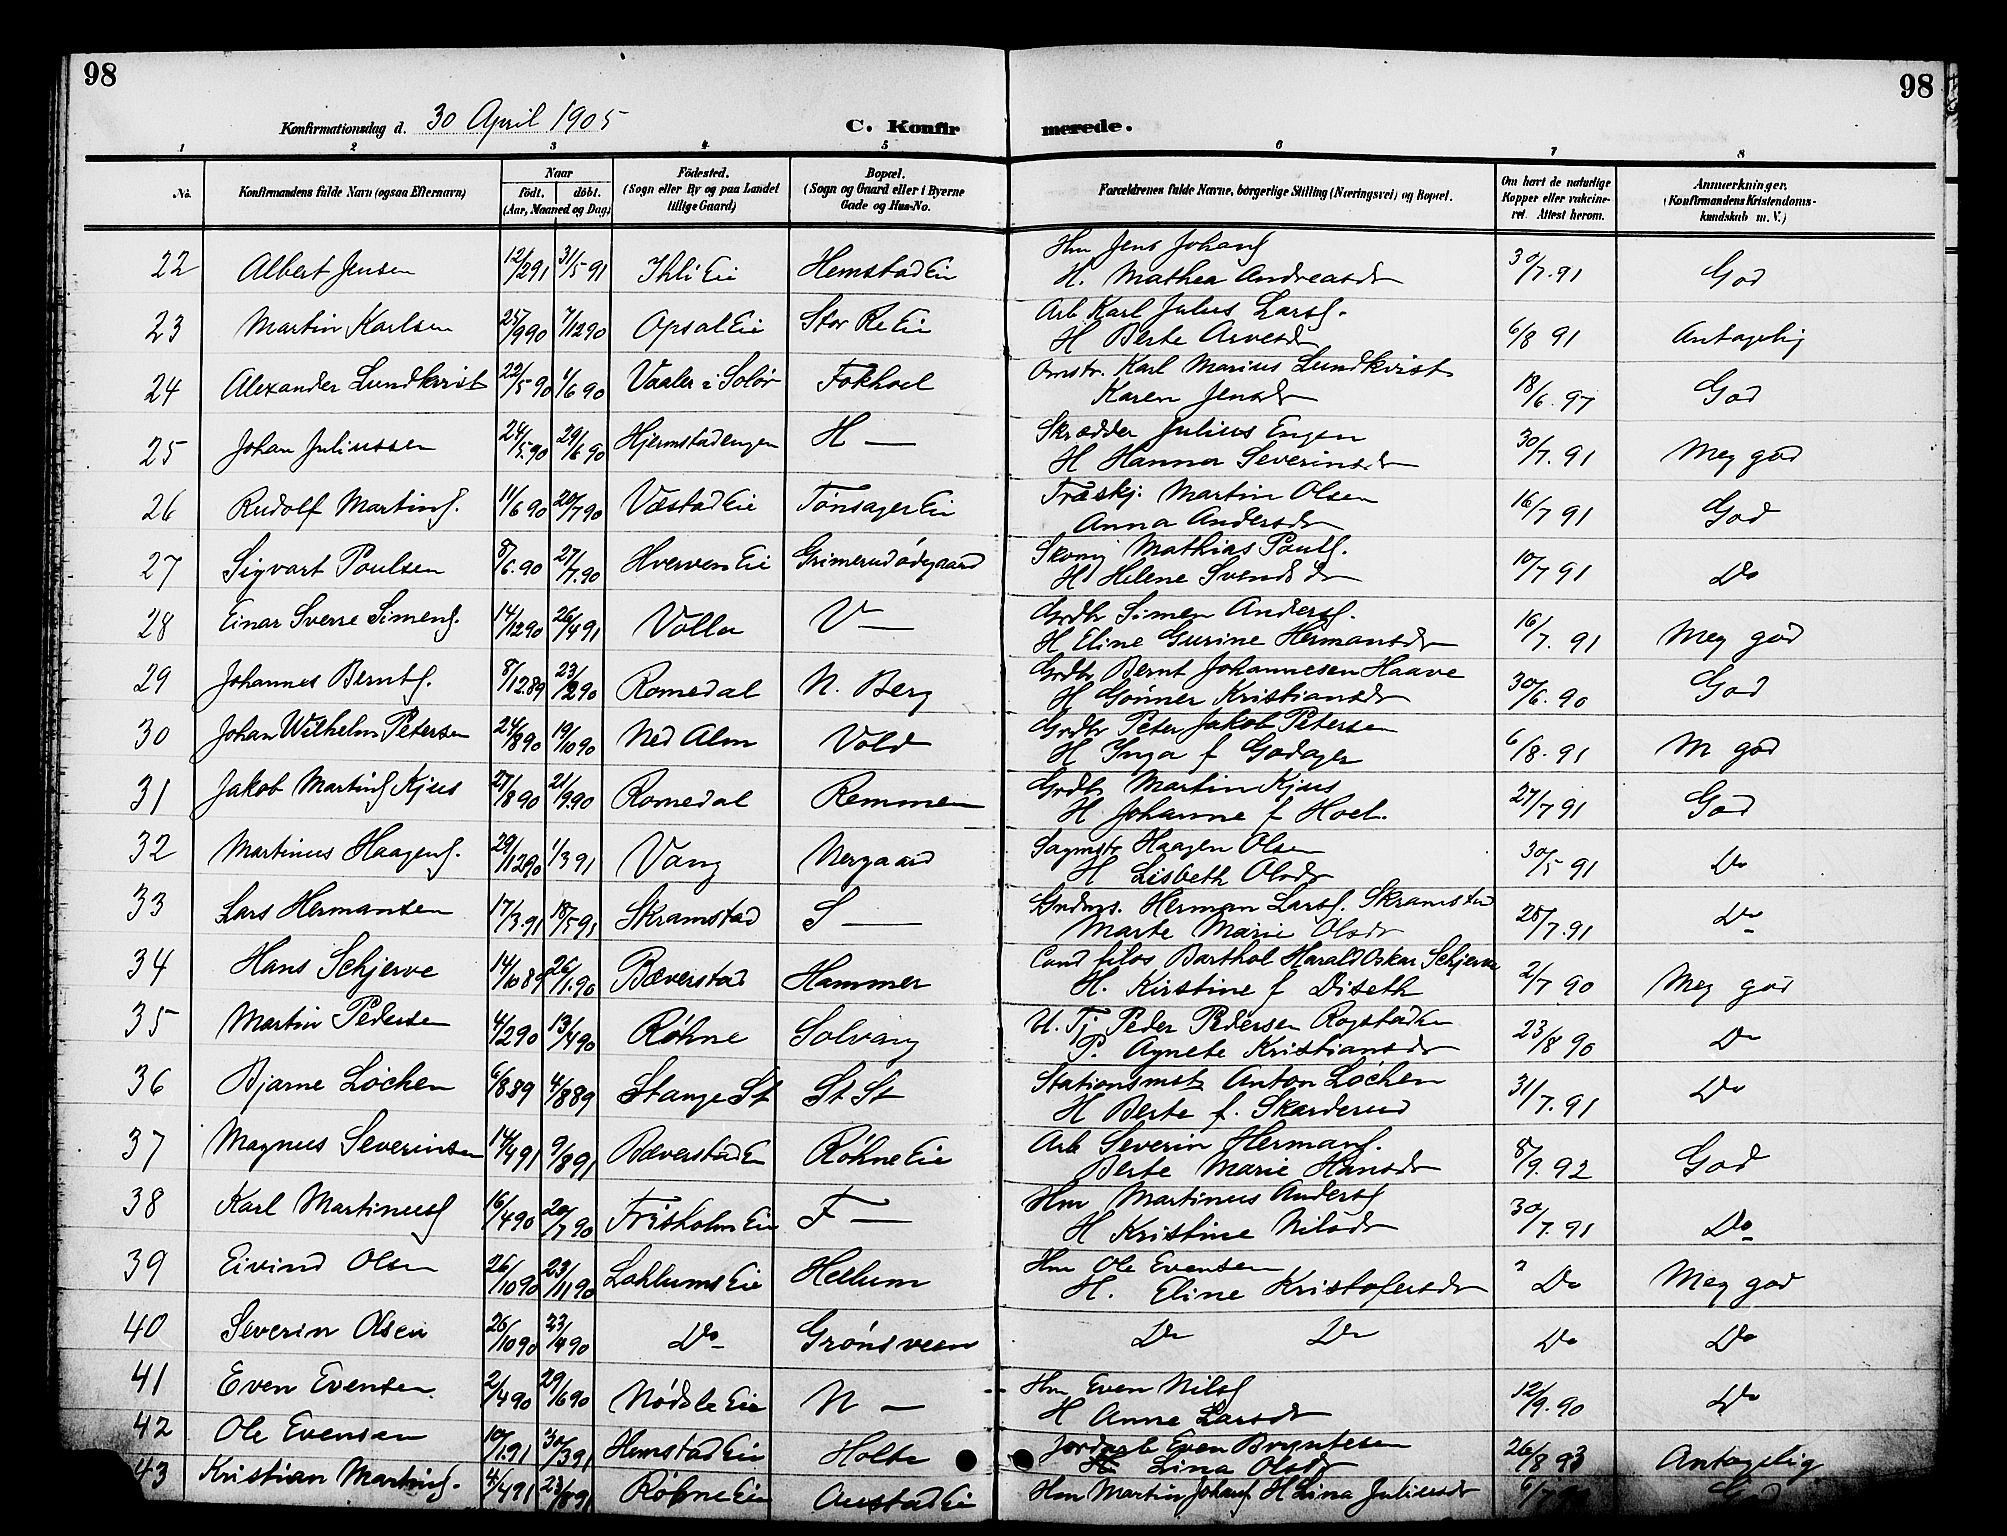 98
98
Konfirmationsdag d. 30 April 1905
C. Konfirmerede.
1 2 3 4 5 6 7 8
No.
Konfirmandens fulde Navn (ogsaa Efternavn)
Naar
födt. döbt.
(Aar, Maaned og Dag)
Födested.
(Sogn eller By og paa Landet
tillige Gaard)
Bopæl.
(Sogn og Gaard eller i Byerne
Gade og Hus-No.
Forældrenes fulde Navne, borgerlige Stilling (Næringsvei) og Bopæl.
Om havt de naturlige
Kopper eller vakcine-
ret. Attest herom.
Anmærkninger.
(Konfirmandens Kristendoms-
kundskab m. V.)
22 Albert Jensen 12/2 91 31/5 91 Ihli Eie Hemstad Eie Hm Jens Johans
H. Mathea Andreasdr 30/7. 91 God
23 Martin Karlsen 25/9 90 7/12 90 Opsal Eie Stor Re Eie Arb Karl Julius Lars.
H Berte Arvesdr 6/8 91 Antagelig
24 Alexander Lundkvist 22/5 90 1/6 90 Vaaler i Solør Fokhoel Omstr. Karl Marius Lundkvist
Karen Jensdr 18/6. 97 God
25 Johan Juliussen 24/5. 90 29/6 90 Hjermstadengen H — Skrædder Julius Engen
H Hanna Severinsdr 30/7. 91 Meg god
26 Rudolf Martins. 11/6 90 20/7 90 Væstad Eie Tønsager Eie Træskj. Martin Olsen
Anna Andersdr 16/7 91 God
27 Sigvart Poulsen 8/6. 90 27/7. 90 Hverven Eie Grimerudødegaard Skom Mathias Pouls.
H Helene Svendsdr 10/7 91 Do
28 Einar Sverre Simens. 14/12 90 26/4 91 Volla V — Grdbr Simen Anders.
H Eline Gurine Hermansdr 16/7. 91 Meg god
29 Johannes Bernts. 8/12 89 23/2 90 Romedal N. Berg Grdbr Bernt Johannesen Haave
H Gønner Kristiansdr 30/6. 90 God
30 Johan Wilhelm Petersen 24/8 90 19/10 90 Ned Alm Vold Grdbr Peter Jakob Petersen
H Inga f Godager 6/8. 91 M god
31 Jakob Martins Kjus 27/8 90 21/9 90 Romedal Remmen Grdbr Martin Kjus
H Johanne f Hoel. 27/7 91 God
32 Martinus Haagens. 29/12 90 1/3 91 Vang Nergaard Sagmstr Haagen Olsen
H Lisbeth Olsdr 30/5 91 Do
33 Lars Hermansen 17/3. 91 18/5 91 Skramstad S — Herman Lars. Skramstad
Marte Marie Olsdr 25/7. 91 Do
34 Hans Schjerve 14/10 89 26/1. 90 Bæverstad Hammer Cand filos Barthol Harald Oskar Schjerve
H. Kirstine f Diseth 2/7 90 Meg god
35 Martin Pedersen 4/2 90 13/4 90 Røhne Solvang U. Tj Peder Pedersen Rogstadkn
P. Agnete Kristiansdr 23/8 90 Do
36 Bjarne Løchen 6/8 89 4/8 89 Stange St St St Stationsmst Anton Løchen
H Berte f. Skarderud 31/7. 91 Do
37 Magnus Severinsen 14/4 91 9/8 91 Bæverstad E Røhne Eie Arb Severin Hermans.
Berte Marie Hansdr 8/9. 92 God
38 Karl Martinus 16/4 90 20/7 90 Friskholm Eie F — Hm Martinus Anders
H Kristine Nilsdr 30/7. 91 Do
39 Eivind Olsen 26/10 90 23/11 90 Lahlums Eie Hellum Hm Ole Evensen
H. Eline Kristofersdr Do Meg god
40 Severin Olsen 26/10 90 Do Grønsveen Do Do Do Do
41 Even Evensen. 2/4 90 29/6 90 Nødsle Eie N — Hm Even Nils
H Anne Larsdr 12/9. 90 Do
42 Ole Evensen 10/1 91 30/3 91 Hemstad Eie Holte Even Bryntesen
H Lina Olsdr 26/8 93 Antagelig
43 Kristian Martins. 4/4 91 23/8 91 Røhne Eie Austad Eie Hm Martin Johans H Lina Juliusdr God